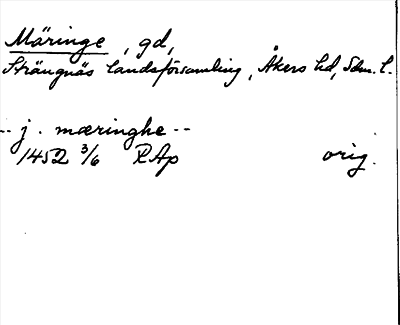 Märinge, gd,
Strängnäs landsförsamling, Åkers hd, Sdm. l.
-- j. mæringhe --
1452 3/6 RAp orig.